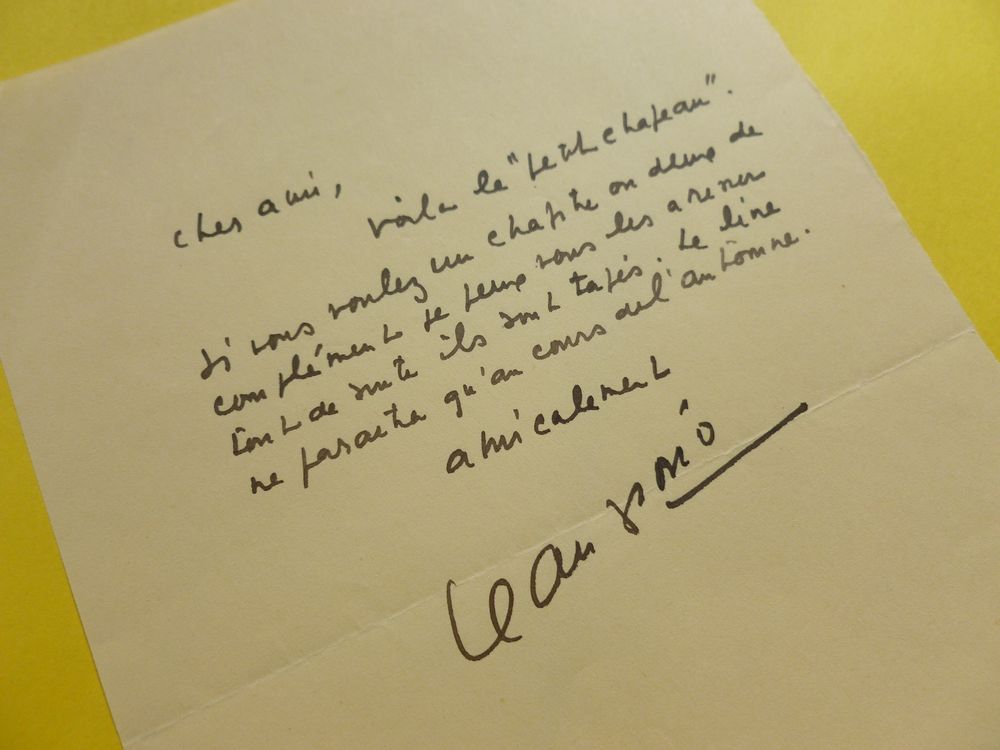 cher ami,
voilà le "petit chapeau".
si vous voulez un chapitre ou deux de
complément je peux vous les avoir
tout de suite ils sont tapés. Le livre
ne paraitra qu'au cours de l'automne.
amicalement
Jean Giono